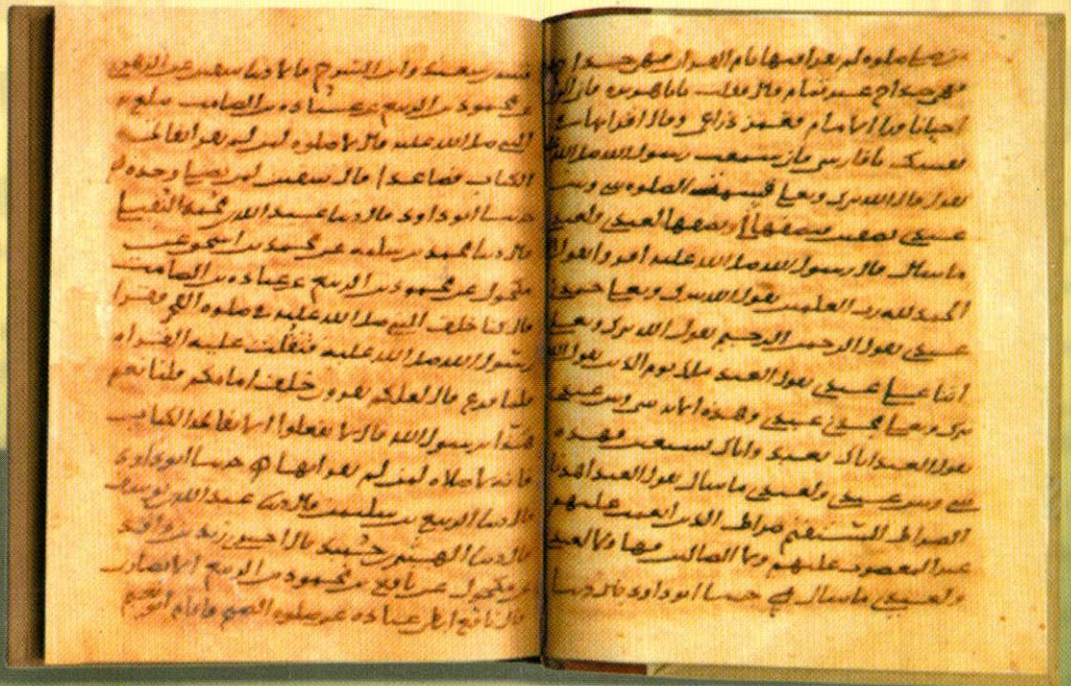 من صلى صلوه لم يقرا فيها بام القران فهى خداج
فهى خداج غير تمام قال فقلت يابا هريره فانى اكون
احيانا ورا الامام فغمز ذراعى وقال اقرا بها فى
نفسك يا فارسى فانى سمعت رسول الله صلى الله
يقول قال الله تبرك وتعلى قسمت الصلوه بينى وبين
عبدى نصفين فنصفها لى ونصفها لعبدى ولعبدى
ما سال قال رسول الله صلى الله عليه اقروا يقول
الحمد لله رب العلمين يقول الله تبرك وتعلى حمدنى
عبدى يقول الرحمن الرحيم يقول الله تبرك وتعلى
اثنا على عبدى يقول العبد ملك يوم الدين يقول الله
تبرك وتعلى مجدنى عبدى وهذه الايه بينى وبين عبدى
يقول العبد اياك نعبد واياك نستعين فهذه
بينى وبين عبدى ولعبدى ما سال يقول العبد اهدنا
الصراط المستقيم صراط الذين انعمت عليهم
غير المغضوب عليهم ولا الضالين فهاولا لعبدى
ولعبدى ما سال حدثنا ابو داود قال دثنا
قتيبه بن سعيد وابن السرح قالا دثنا سفين عن الزهرى
عن محمود بن الربيع عن عباده بن الصامت يبلغ به
النبى صلى الله عليه قال لا صلوه لمن لم يقرا بفاتحه
الكتاب فصاعدا قال سفين لمن يصلى وحده
حدثنا ابو داود قال دثنا عبد الله بن محمد النفيلى
قال دثنا محمد بن سلمه عن محمد بن اسحق عن
مكحول عن محمود بن الربيع عن عباده بن الصامت
قال كنا خلف النبى صلى الله عليه فى صلوه الفجر فقرا
رسول الله صلى الله عليه فثقلت عليه القراه
فلما فرغ قال لعلكم تقرون خلف امامكم قلنا نعم
هذا يرسول الله قال لا تفعلوا الا بفاتحه الكتاب
فانه لا صلاه لمن لم يقرا بها حدثنا ابو داود
قال دثنا الربيع بن سليمن قال دثنا عبد الله بن يوسف
قال دثنا الهيثم بن حميد قال اخبرنى زيد بن واقد
عن مكحول عن نافع بن محمود بن الربيع الانصارى
قال نافع ابطى عباده عن صلوه الصبح فاقام ابو نعيم